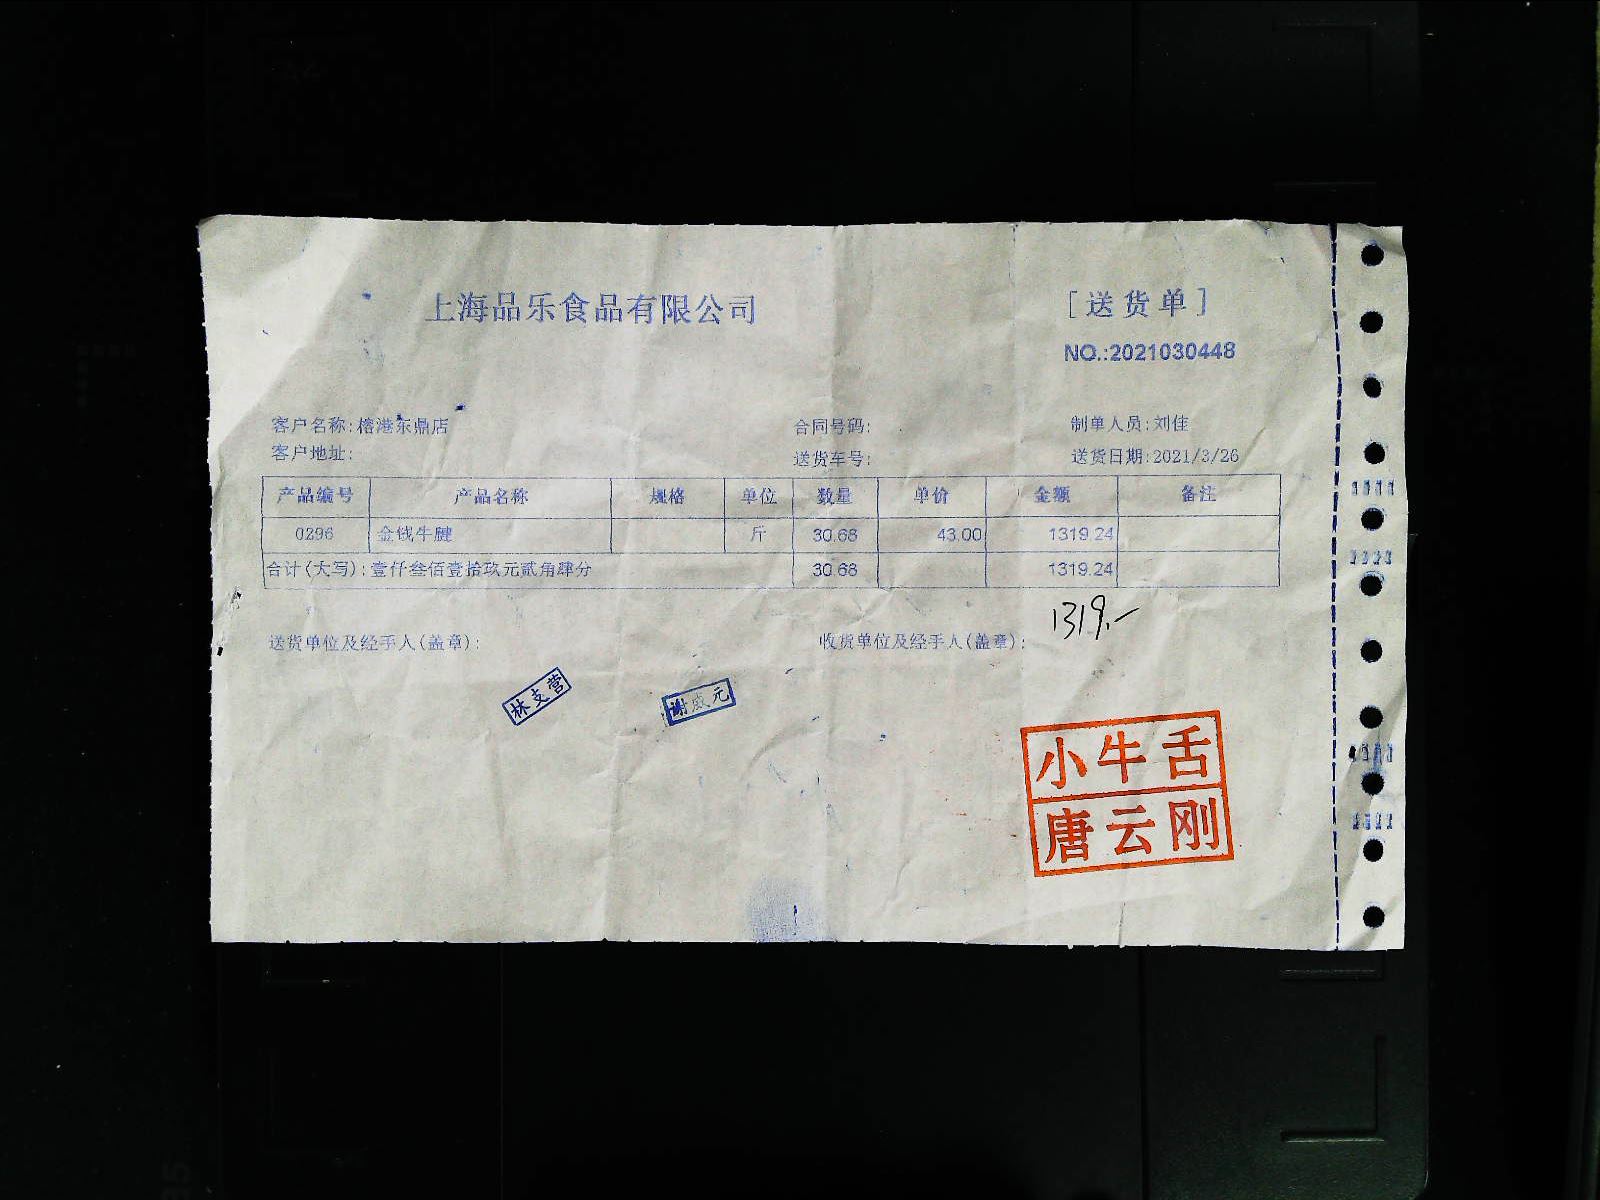 上海品乐食品有限公司
[送货单]
NO.:2021030448
客户名称:榕港东鼎店 合同号码: 制单人员:刘佳
客户地址: 送货车号: 送货日期:2021/3/26
产品编号 产品名称 规格 单位 数量 单价 金额 备注
0296 金钱牛腱 斤 30.68 43.00 1319.24
合计(大写):壹仟叁佰壹拾玖元贰角肆分 30.68 1319.24
1319.-
送货单位及经手人(盖章): 收货单位及经手人(盖章):
林支营 谢成元
小牛舌
唐云刚